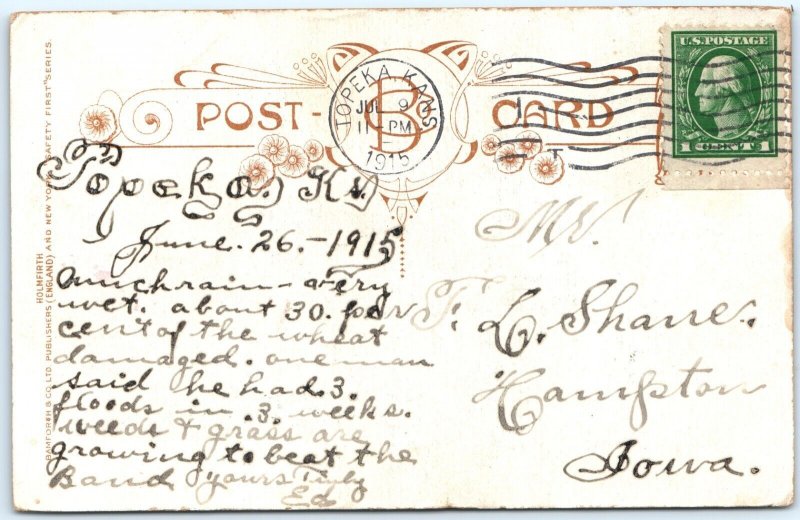 POST- B CARD
TOPEKA, KANS.
JUL 9
11 PM
1915
U.S. POSTAGE
1 CENT 1
Topeka, Ks
June. 26.-1915
Much rain - very
wet. about 30. per
cent of the wheat
damaged. one man
said he had .3.
floods in .3. weeks.
weeds & grass are
growing to beat the
Band yours Truly
Ed
Mr.
F. L. Shane.
Hampton
Iowa.
HOLMFIRTH
BAMFORTH & CO. LTD. PUBLISHERS (ENGLAND) AND NEW YORK "SAFETY FIRST" SERIES.